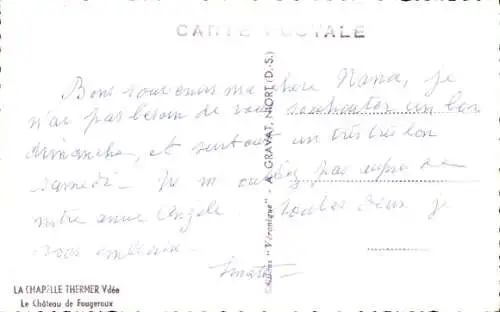 CARTE POSTALE
Bons souvenirs ma chère Nana, je
n'ai pas besoin de vous souhaiter un bon
dimanche, et surtout un très très bon
samedi. Ne m'oubliez pas auprès de
notre amie Angèle. Toutes deux je
vous embrasse.
Editions "Véronique" - A. GRAVAT, NIORT (D.-S.)
LA CHAPELLE THERMER Vdée
Le Château de Fougeroux